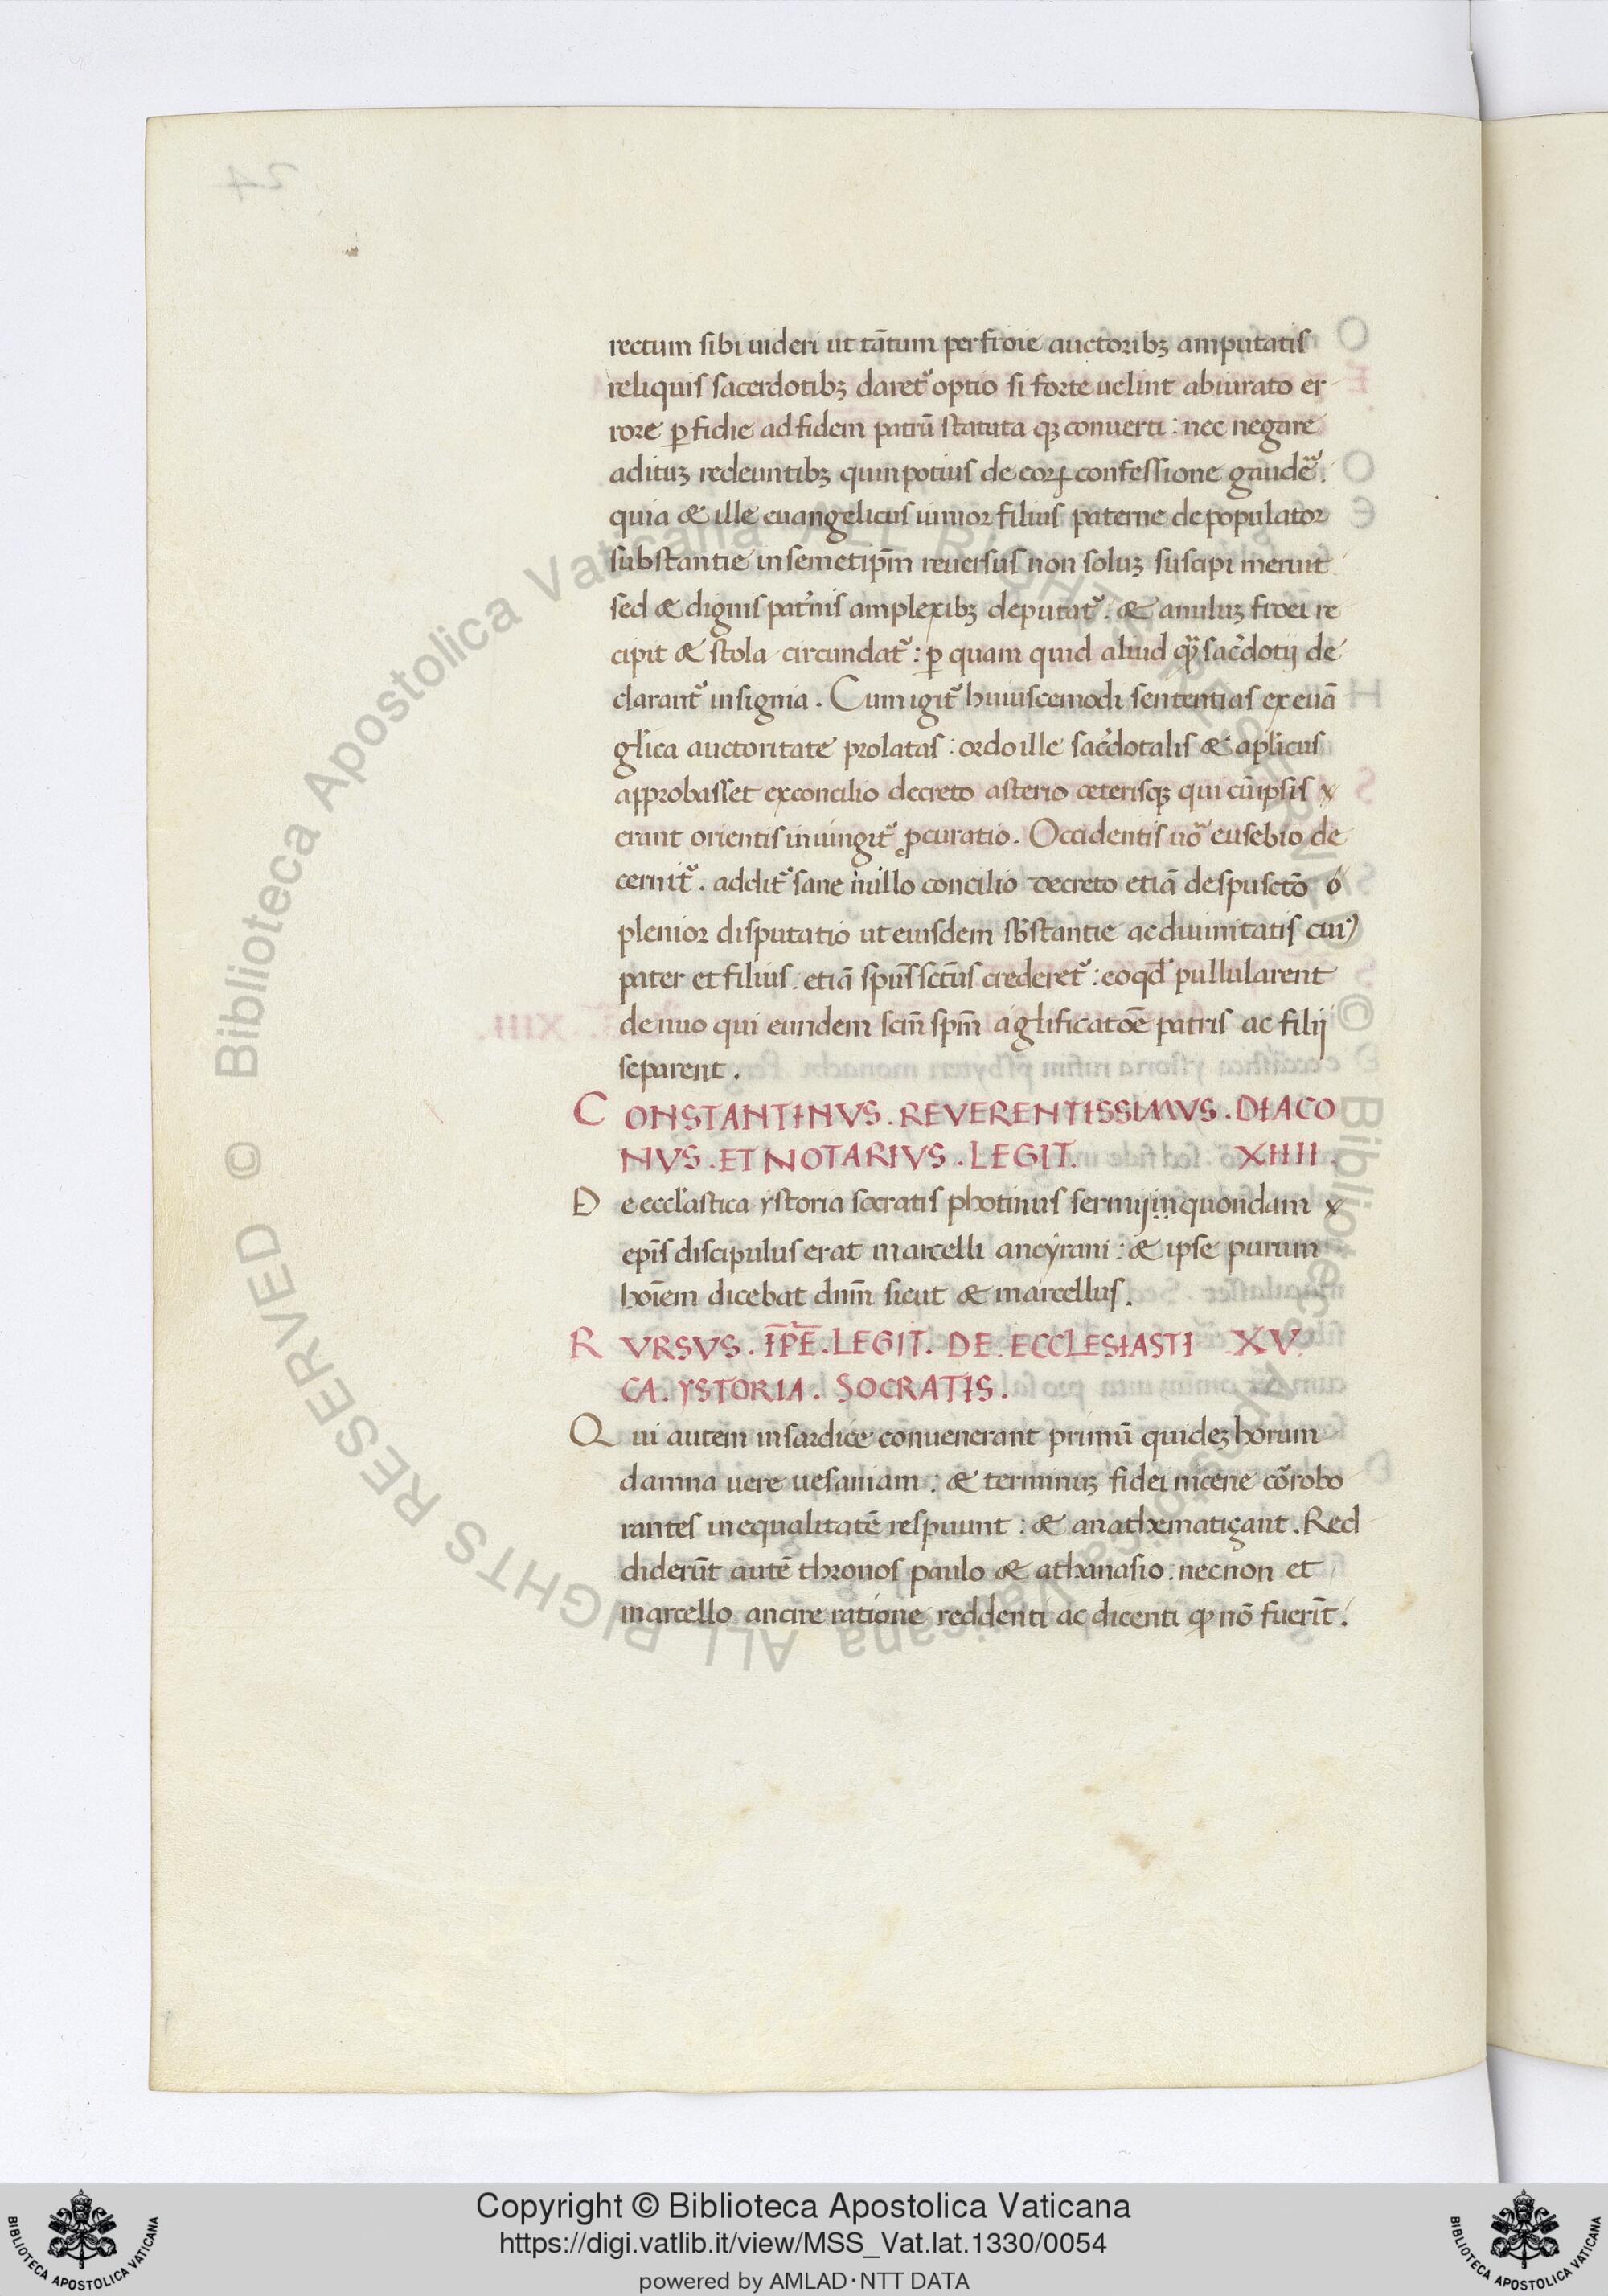 rectum sibi uideri ut tātum perfidie auctoribꝫ amputatis
reliquis sacerdotibꝫ daret᷑ optio si forte uelint abiurato er
rore ꝑfidie ad fidem patrū statuta qꝫ conuerti : nec negare
adituꝫ redeuntibꝫ quin potius de eoꝝ confessione gaudē᷑.
quia & ille euangelicus iunior filius paterne depopulator
substantie in semetip̄m reuersus non soluꝫ suscipi meruit
sed & dignis pat'nis amplexibꝫ deputat᷑. & anuluꝫ fidei re
cipit & stola circundat᷑ : ꝑ quam quid aliud qꝫ sac'dotij de
clarant᷑ insignia . Cum igit᷑ huiuscemodi sententias ex euā
gl'ica auctoritate prolatas : ordo ille sac'dotalis & apl'icus
approbasset ex concilio decreto asterio ceterisqꝫ qui cū ipsis x
erant orientis iniungit᷑ ꝓcuratio . Occidentis uō eusebio de
cernit᷑ . addit᷑ sane in illo concilio decreto etiā de spū sctō ó
plenior disputatio ut eiusdem sb'stantie ac diuinitatis cuiꝰ
pater et filius . etiā spūs sctūs crederet᷑ : eo qd' pullularent
denuo qui eundem scm̄ spm̄ a gl'ificatōe patris ac filij
separent .
CONSTANTINVS . REVERENTISSIMVS . DIACO
NVS . ET NOTARIVS . LEGIT . XIIII .
De eccl'astica ystoria socratis photinus sermij in quondam x
epīs discipulus erat marcelli ancyrani : & ipse purum
hoīem dicebat dnm̄ sicut & marcellus .
RVRSVS . IP̄E . LEGIT . DE . ECCLESIASTI XV
CA . YSTORIA . SOCRATIS .
Qui autem in sardice conuenerant primū quideꝫ horum
damnauere uesaniam : & terminuꝫ fidei nicene cōrobo
rantes inequalitatē respuunt : & anathematiçant . Red
diderūt autē thronos paulo & athanasio . necnon et
marcello ancire ratione reddenti ac dicenti ꝙ nō fuerīt .
24
Copyright © Biblioteca Apostolica Vaticana
https://digi.vatlib.it/view/MSS_Vat.lat.1330/0054
powered by AMLAD·NTT DATA
BIBLIOTECA APOSTOLICA VATICANA
BIBLIOTECA APOSTOLICA VATICANA
© Biblioteca Apostolica Vaticana ALL RIGHTS RESERVED
© Biblioteca Apostolica Vaticana ALL RIGHTS RESERVED